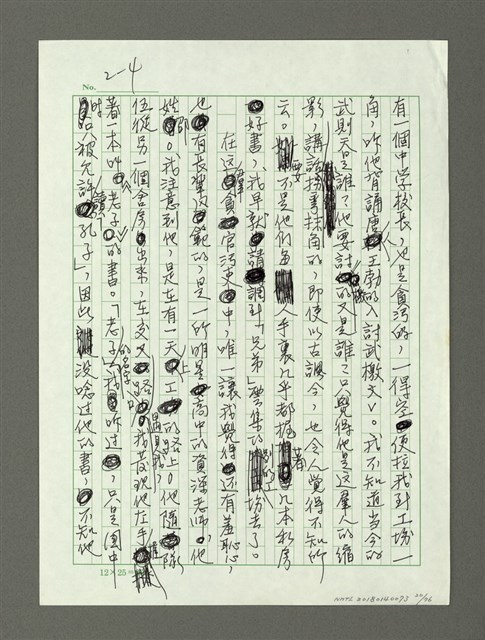 No. 2-4
有一個中学校長，也是貪污的，一得空便拉我到工坊一
角，听他背誦唐王勃的入討武檄文。我不知道当今的
武則天是誰？他要討的又是誰？只覺得他是这羣人的縮
影，講話拐弯抹角的，即使以古諷今，也令人覺得不知所
云。要不是他們每人手裏几乎都握着几本私房
好書，我早就請調到「兄弟」雲集的工坊去了。
在这羣貪官污吏中，唯一讓我覺得还有羞恥，
也有長輩風範的，是一所明星高中的資深老师，他
姓邵。我注意到他，是在有一天上工的路上。他隨隊
伍從另一個舍房出來，在交叉路我發現他左手
著一本叫《老子》的書。「老子」的名字我听过，只是国中
時只被允許讀「孔子」，因此沒唸过他的書，不知他
12×25
NMTL 20180040073 20/26